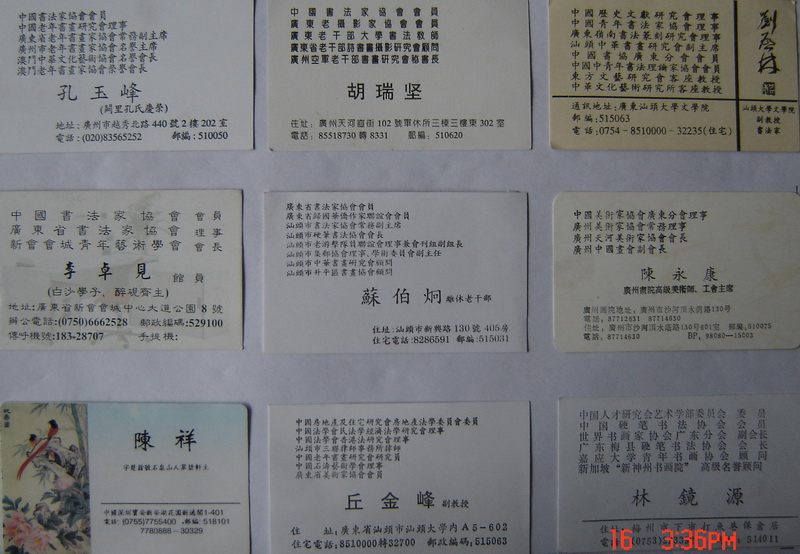 中國書法家協會會員
中國老年書畫研究會理事
廣東省老年書法家協會常務副主席
廣州市老年書畫家協會名譽主席
澳門中華文化藝術協會名譽會長
澳門老年書畫家協會榮譽會長
孔玉峰
(闕里孔氏慶榮)
地址:廣州市越秀北路440號2樓202室
電話:(020)83565252 郵編:510050
中國書法家協會會員
中國老攝影家協會會員
廣東老干部大學書法教師
廣東省老干部詩書畫攝影研究會顧問
廣州空軍老干部書畫研究會秘書長
胡瑞坚
住址:廣州天河直街102號軍休所三棟三樓東302室
電話:85518730轉8331 郵編:510620
中國歷史文獻研究會理事
中國青年書法家協會理事
廣東嶺南書法篆刻研究會理事
汕頭中華書畫研究會副主席
中國書協廣東分會會員
中國中青年書法理論家協會會員
東方文藝研究會客座教授
中華文化藝術研究所客座教授
通訊地址:廣東汕頭大學文學院
郵編:515063
電話:0754-8510000-32235(住宅)
汕頭大學文學院
副教授
書法家
中國書法家協會 會員
廣東省書法家協會 理事
新會會城青年藝術學會 會長
李卓見 館員
(白沙學子、醉硯齊主)
地址:廣東省新會會城中心大道公園8號
辦公電話:(0750)6662528 郵政編碼:529100
傳呼機號:183-28707 手提機:
廣東省書法家協會會員
廣東省歸國華僑作家聯誼會會員
汕頭市書法家協會常務副主席
汕頭市硬筆書法家協會會長
汕頭市老游擊隊員聯誼會理事兼會刊組副組長
汕頭市集郵協會理事、學術委員會副主任
汕頭市中華書畫研究會顧問
汕頭市升平區書畫協會顧問
蘇伯炯 離休老干部
住址:汕頭市新興路130號405房
住宅電話:8286591 郵編:515031
中國美術家協會廣東分會理事
廣州美術家協會常務理事
廣州天河美術家協會會長
廣州中國畫會副會長
陳永康
廣州畫院高級美術師、工會主席
廣州畫院地址:廣州市沙河頂水蔭路130號
電話:87712631 87714630
住址:廣州市沙河頂水蔭路130號601室 郵編:510075
電話:87714630 BP:98080-15003
陳祥
中國深圳寶安新安湖花園新通閣1-401
電話:(0755)7755400 郵編:518101
7780888-30329
中國房地產及住宅研究會房地產法學委員會委員
中國法學會民法學經濟法學研究會理事
中國法學會香港法研究會理事
汕頭市三聯律師事務所律師
中國老年書畫研究會研究員
中國石濤藝術學會理事
廣東省美術家協會會員
丘金峰 副教授
住址:廣東省汕頭市汕頭大學內A5-602
住宅電話:8510000轉32700 郵政編碼:515063
中国人才研究会艺术学部委员会 委员
中国硬笔书法协会 会员
世界书画家协会广东分会 副会长
广东梅县硬笔书法协会 会长
嘉应大学青年书画协会 顾问
新加坡“新神州书画院” 高级名誉顾问
林鏡源
16 3:36PM